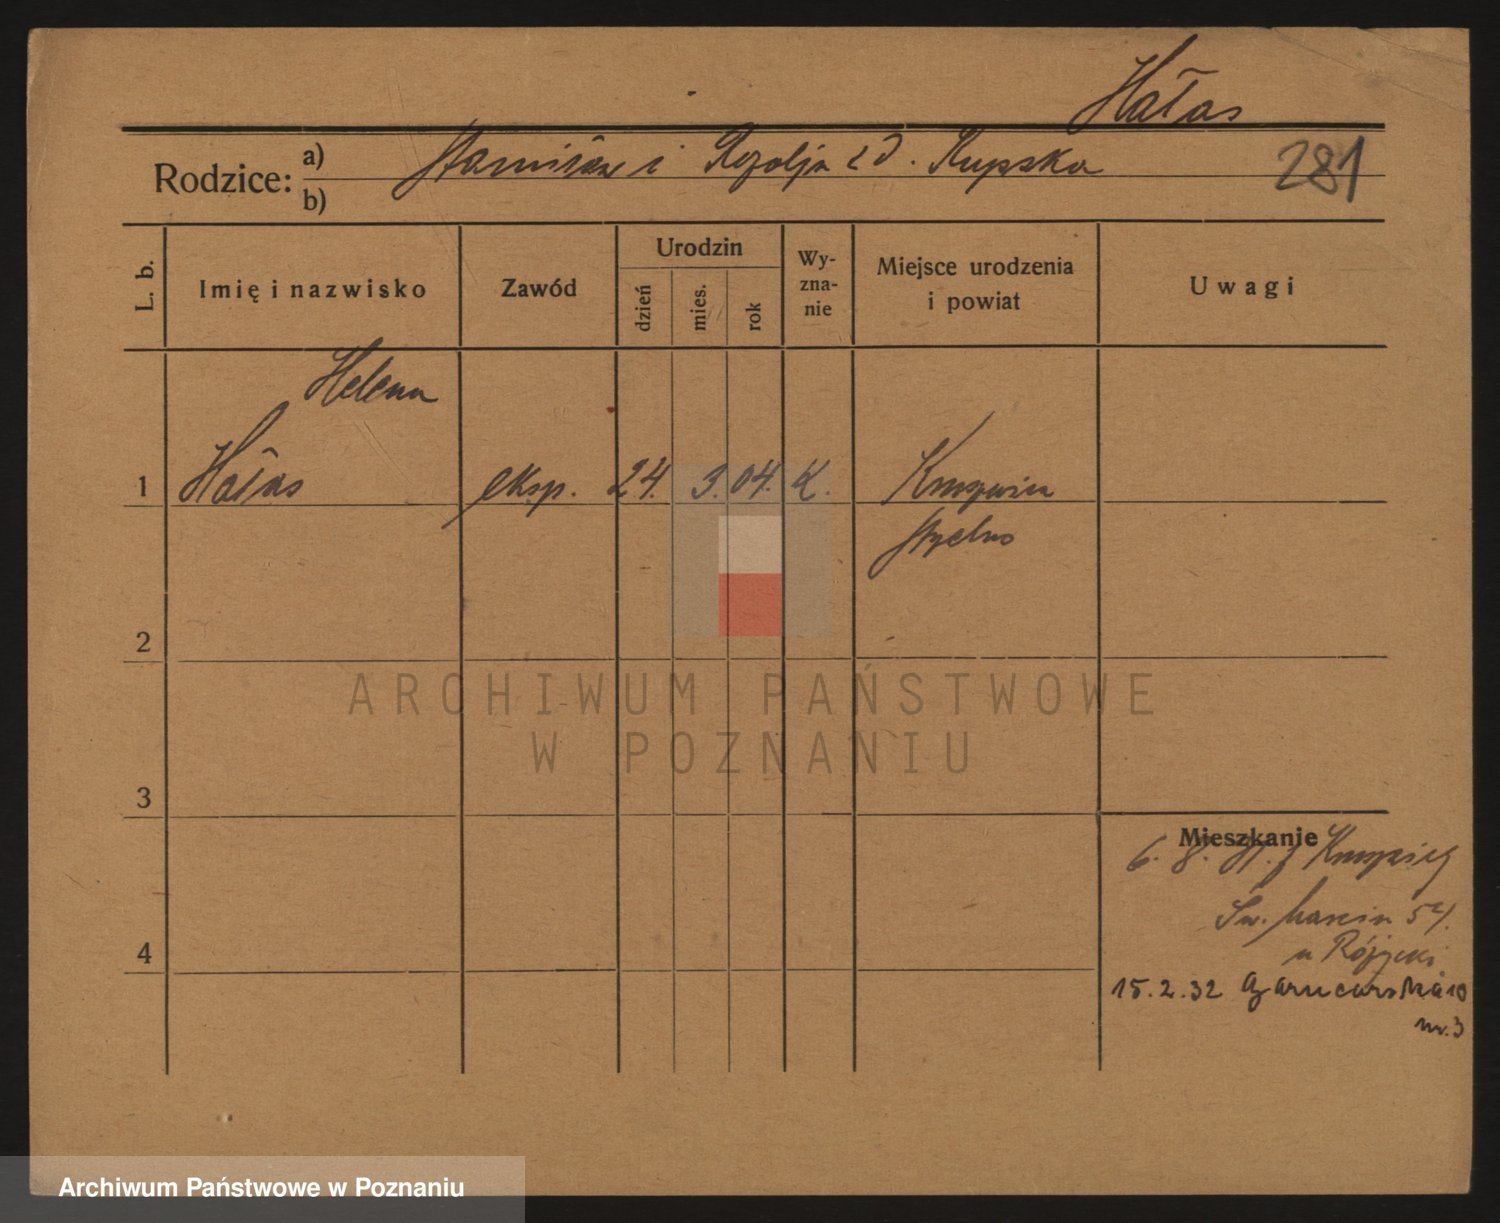 Hałas
Rodzice: a) Stanisław i Rozalja z d. Kupska
b)
281
L. b.
Imię i nazwisko
Zawód
Urodzin
dzień
mies.
rok
Wy-
zna-
nie
Miejsce urodzenia
i powiat
Uwagi
Helena
1 Hałas eksp. 24. 3. 04. K. Kruszwica
Strzelno
2
3
4
Mieszkanie
6. 8. 31. z Kruszwicy
Św. Marcin 54.
u Różycki
15.2.32 Garncarska 10
m. 3
ARCHIWUM PAŃSTWOWE
W POZNANIU
Archiwum Państwowe w Poznaniu